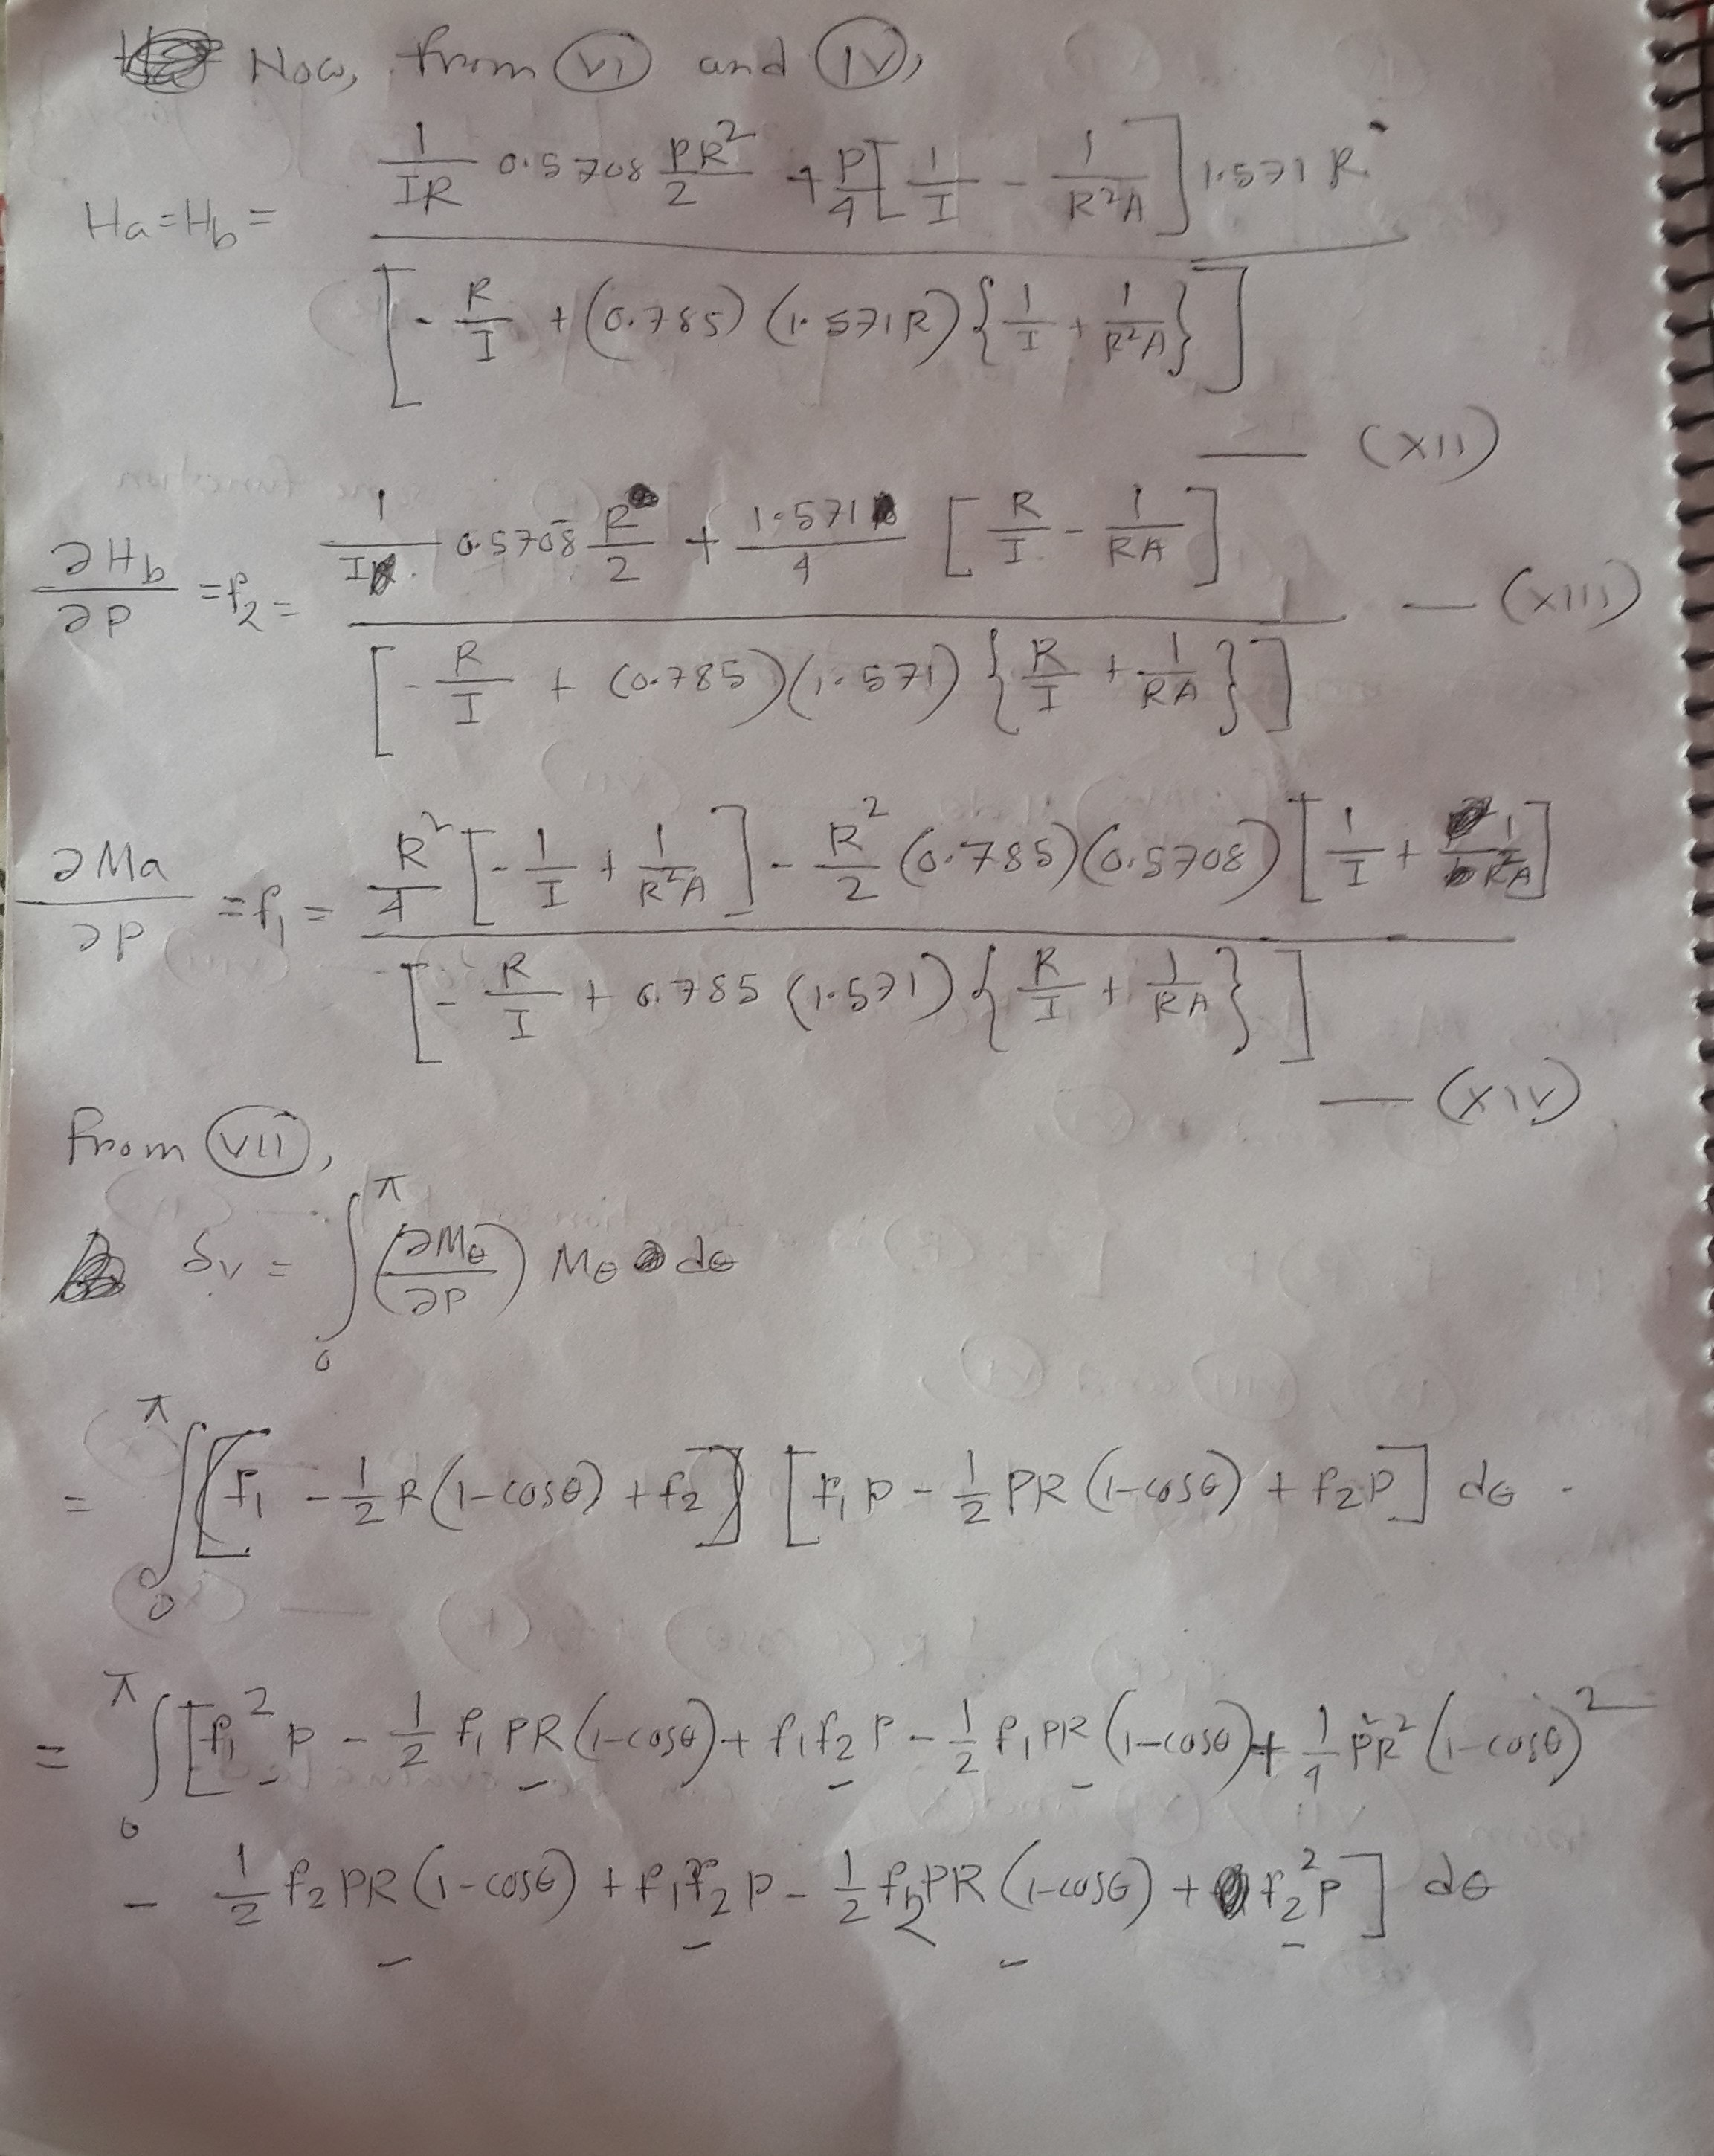 Now, from (VI) and (IV),
Ha = Hb = \frac{\frac{1}{IR} 0.5708 \frac{PR^2}{2} + \frac{P}{4} [\frac{1}{I} - \frac{1}{R^2A}] 1.571 R}{[-\frac{R}{I} + (0.785) (1.571R) {\frac{1}{I} + \frac{1}{R^2A}}]}
— (XII)
\frac{∂Hb}{∂P} = f_2 = \frac{\frac{1}{I} 0.5708 \frac{R}{2} + \frac{1.571}{4} [\frac{R}{I} - \frac{1}{RA}]}{[-\frac{R}{I} + (0.785)(1.571) {\frac{R}{I} + \frac{1}{RA}}]} — (XIII)
\frac{∂Ma}{∂P} = f_1 = \frac{\frac{R^2}{4} [-\frac{1}{I} + \frac{1}{R^2A}] - \frac{R^2}{2} (0.785)(0.5708) [\frac{1}{I} + \frac{1}{R^2A}]}{[-\frac{R}{I} + 0.785 (1.571) {\frac{R}{I} + \frac{1}{RA}}]}
— (XIV)
From (VII),
δ_v = ∫_0^π (\frac{∂M_θ}{∂P}) M_θ dθ
= ∫_0^π [f_1 - \frac{1}{2} R (1-cosθ) + f_2] [f_1 P - \frac{1}{2} PR (1-cosθ) + f_2 P] dθ .
= ∫_0^π [f_1^2 P - \frac{1}{2} f_1 PR (1-cosθ) + f_1 f_2 P - \frac{1}{2} f_1 PR (1-cosθ) + \frac{1}{4} PR^2 (1-cosθ)^2
- \frac{1}{2} f_2 PR (1-cosθ) + f_1 f_2 P - \frac{1}{2} f_2 PR (1-cosθ) + f_2^2 P] dθ